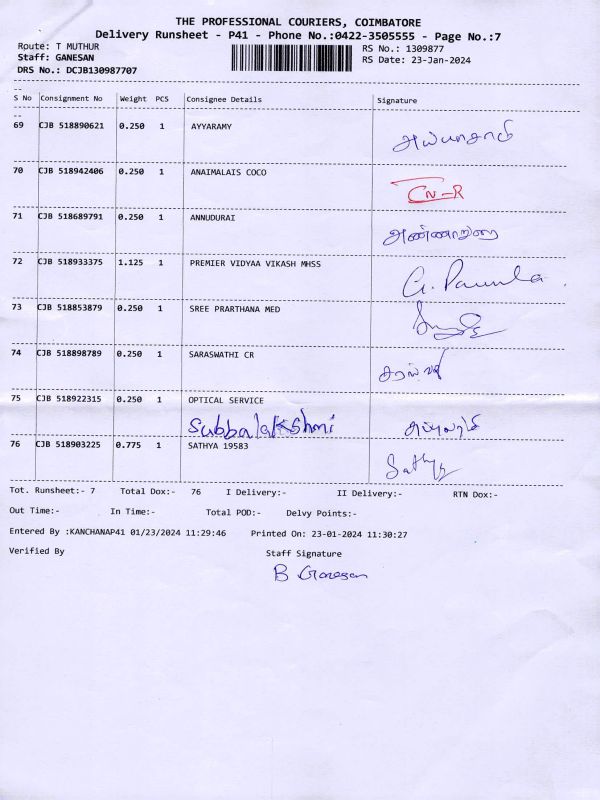 THE PROFESSIONAL COURIERS, COIMBATORE
Delivery Runsheet - P41 - Phone No.:0422-3505555 - Page No.:7
Route: T MUTHUR RS No.: 1309877
Staff: GANESAN RS Date: 23-Jan-2024
DRS No.: DCJB130987707
S No Consignment No Weight PCS Consignee Details Signature
69 CJB 518890621 0.250 1 AYYARAMY
70 CJB 518942406 0.250 1 ANAIMALAIS COCO CN-R
71 CJB 518689791 0.250 1 ANNUDURAI அண்ணாதுரை
72 CJB 518933375 1.125 1 PREMIER VIDYAA VIKASH MHSS
73 CJB 518853879 0.250 1 SREE PRARTHANA MED
74 CJB 518898789 0.250 1 SARASWATHI CR
75 CJB 518922315 0.250 1 OPTICAL SERVICE
Subbalakshmi
76 CJB 518903225 0.775 1 SATHYA 19583 Sathya
Tot. Runsheet:- 7 Total Dox:- 76 I Delivery:- II Delivery:- RTN Dox:-
Out Time:- In Time:- Total POD:- Delvy Points:-
Entered By :KANCHANAP41 01/23/2024 11:29:46 Printed On: 23-01-2024 11:30:27
Verified By Staff Signature
B Ganesan